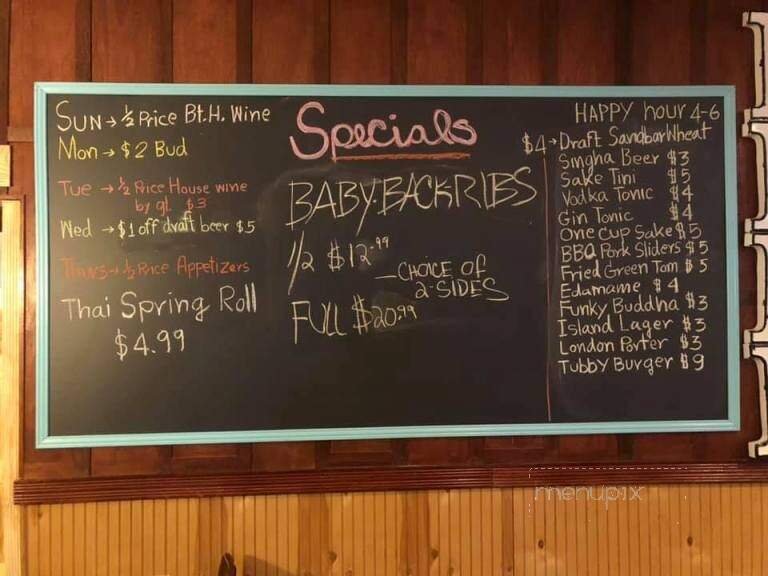 Sun → ½ Price Bt.H. Wine
Mon → $2 Bud
Tue → ½ Price House wine
by gl. $3
Wed → $1 off draft beer $5
Thurs → ½ Price Appetizers
Thai Spring Roll
$4.99
Specials
BABY BACK RIBS
1/2 $12.99
— CHOICE OF
2-SIDES
FULL $20.99
HAPPY hour 4-6
$4 → Draft Sandbar Wheat
Singha Beer $3
Sake Tini $5
Vodka Tonic $4
Gin Tonic $4
One Cup Sake $5
BBQ Pork Sliders $5
Fried Green Tom $5
Edamame $4
Funky Buddha $3
Island Lager $3
London Porter $3
Tubby Burger $9
menupix